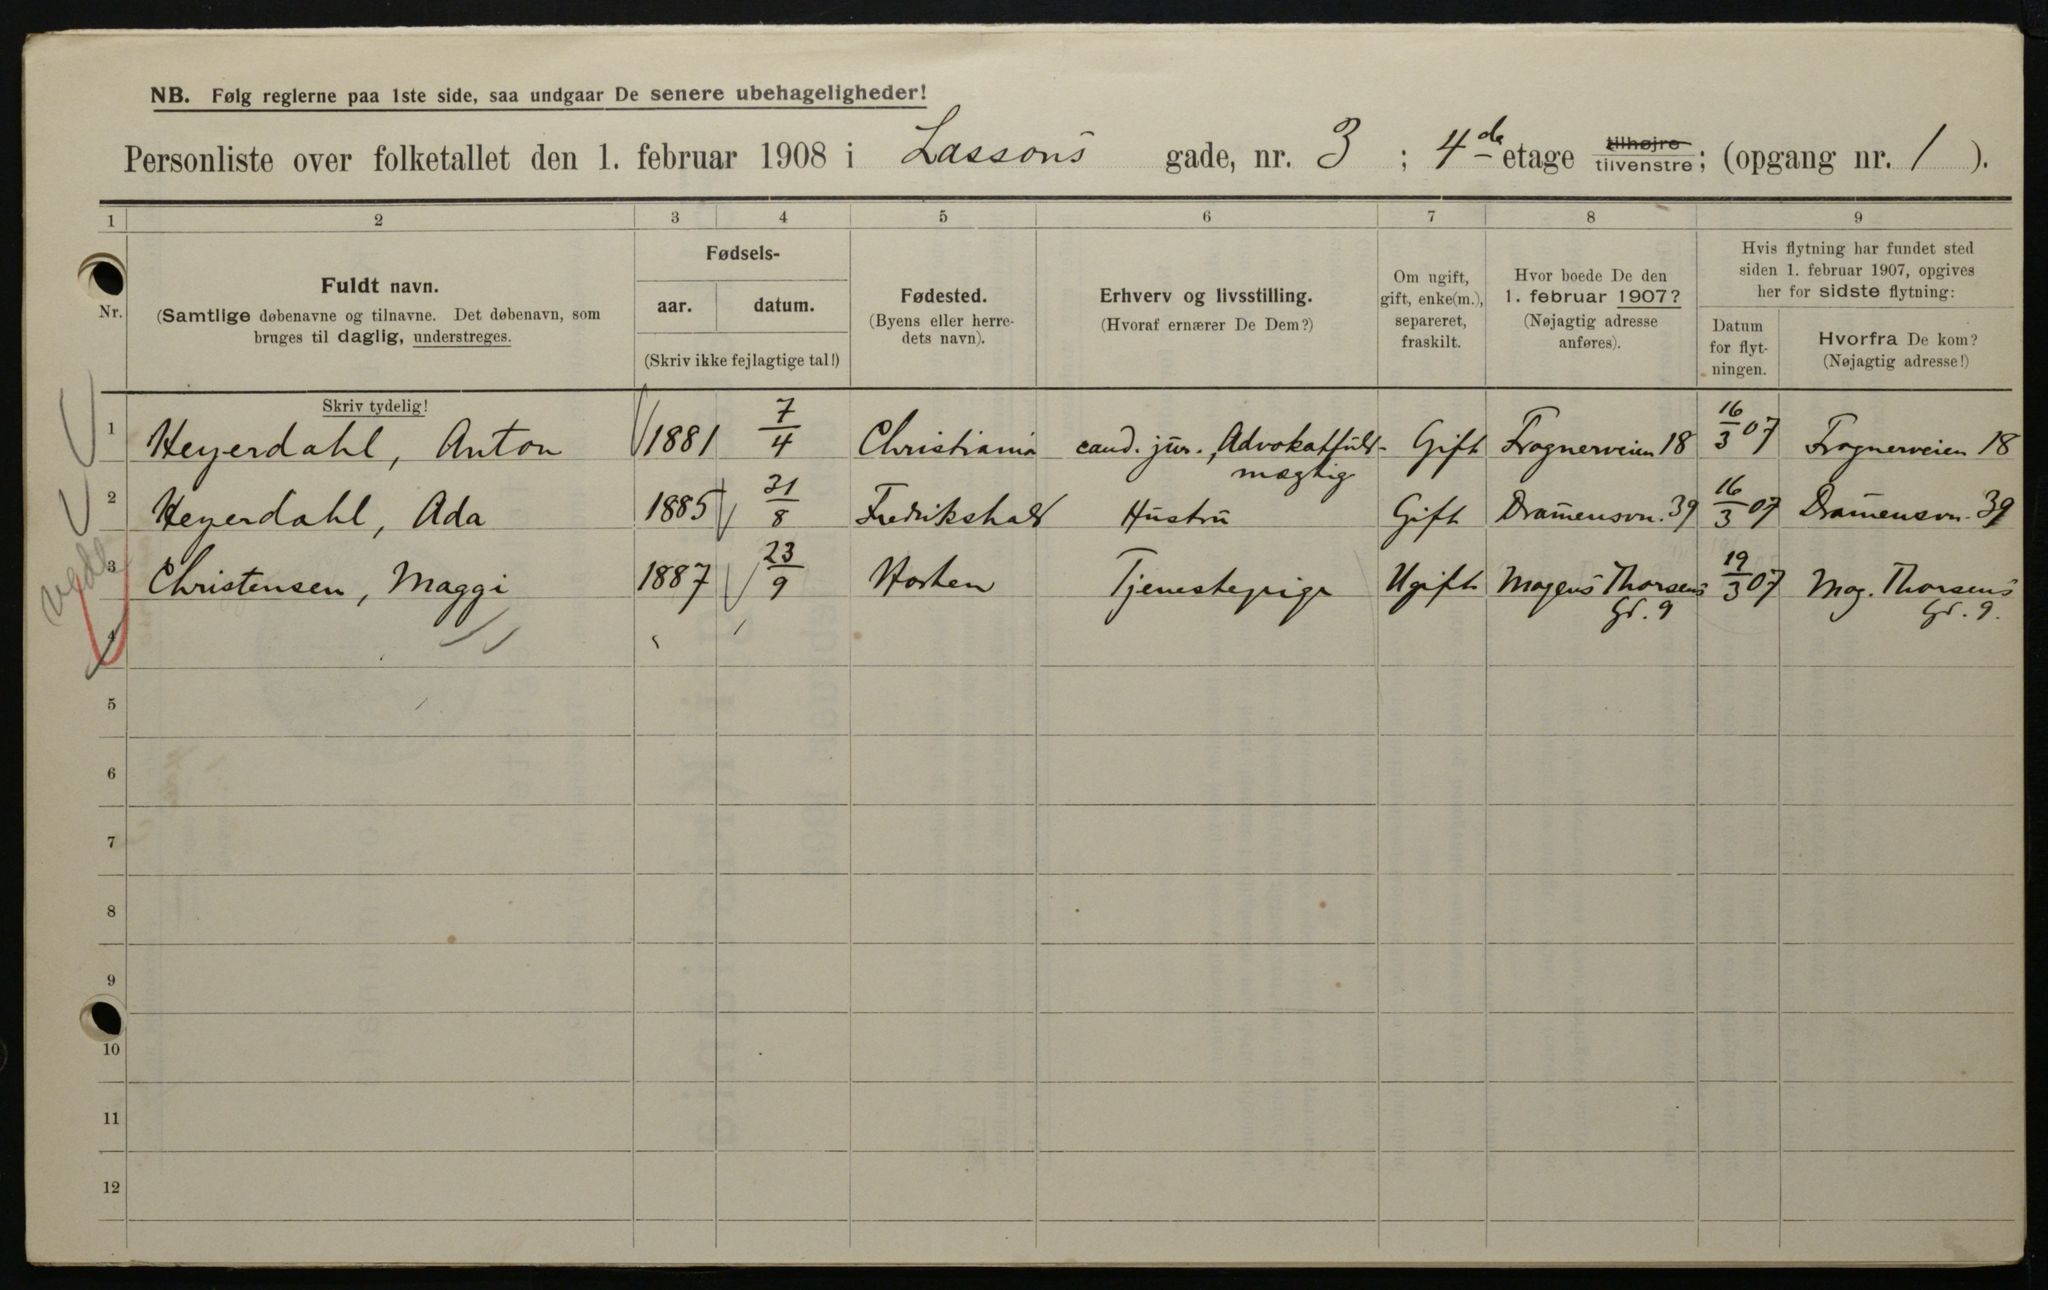 NB. Følg reglerne paa 1ste side, saa undgaar De senere ubehageligheder!
Personliste over folketallet den 1. februar 1908 i Lassons gade, nr. 3 ; 4de etage tilhøjre tilvenstre; (opgang nr. 1 ).
1 2 3 4 5 6 7 8 9
Nr.
Fuldt navn.
(Samtlige døbenavne og tilnavne. Det døbenavn, som
bruges til daglig, understreges.
Skriv tydelig!
Fødsels-
aar. datum.
(Skriv ikke fejlagtige tal!)
Fødested.
(Byens eller herre-
dets navn).
Erhverv og livsstilling.
(Hvoraf ernærer De Dem?)
Om ugift,
gift, enke(m.),
separeret,
fraskilt.
Hvor boede De den
1. februar 1907?
(Nøjagtig adresse
anføres).
Hvis flytning har fundet sted
siden 1. februar 1907, opgives
her for sidste flytning:
Datum
for flyt-
ningen.
Hvorfra De kom?
(Nøjagtig adresse!)
1 Heyerdahl, Anton 1881 7/4 Christiania cand. jur., Advokatfuld- Gift Frognerveien 18 16/3 07 Frognerveien 18
mægtig
2 Heyerdahl, Ada 1885 31/8 Fredrikshald Hustru Gift Dramensvn. 39 16/3 07 Dramensvn. 39
3 Christensen, Maggi 1887 23/9 Horten Tjenestepige Ugift Mogens Thorsens 19/3 07 Mog. Thorsens
Gd. 9 Gd. 9.
4
5
6
7
8
9
10
11
12